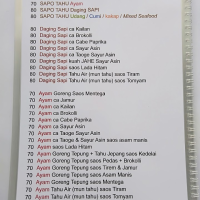 70 SAPO TAHU Ayam
80 SAPO TAHU Daging SAPI
80 SAPO TAHU Udang / Cumi / kakap / Mixed Seafood
80 Daging Sapi ca Kailan
80 Daging Sapi ca Brokoli
80 Daging Sapi ca Cabe Paprika
80 Daging Sapi ca Sayur Asin
80 Daging Sapi ca Taoge Sayur Asin
80 Daging Sapi kuah JAHE Sayur Asin
80 Daging Sapi saos Lada Hitam
80 Daging Sapi Tahu Air (mun tahu) saos Tiram
80 Daging Sapi Tahu Air (mun tahu) saos Tomyam
70 Ayam Goreng Saos Mentega
70 Ayam ca Jamur
70 Ayam ca Kailan
70 Ayam ca Brokoli
70 Ayam ca Cabe Paprika
70 Ayam ca Sayur Asin
70 Ayam ca Taoge Sayur Asin
70 Ayam ca Taoge & Sayur Asin saos asam manis
70 Ayam saos Lada Hitam
70 Ayam Goreng Tepung + Tahu Jepang saos Kedelai
70 Ayam Goreng Tepung saos Pedas + Brokoli
70 Ayam Goreng Tepung saos Tiram & Jamur
70 Ayam Goreng Tepung saos Asam Manis
70 Ayam Goreng Tepung saos Mentega
70 Ayam Tahu Air (mun tahu) saos Tiram
70 Ayam Tahu Air (mun tahu) saos Tomyam